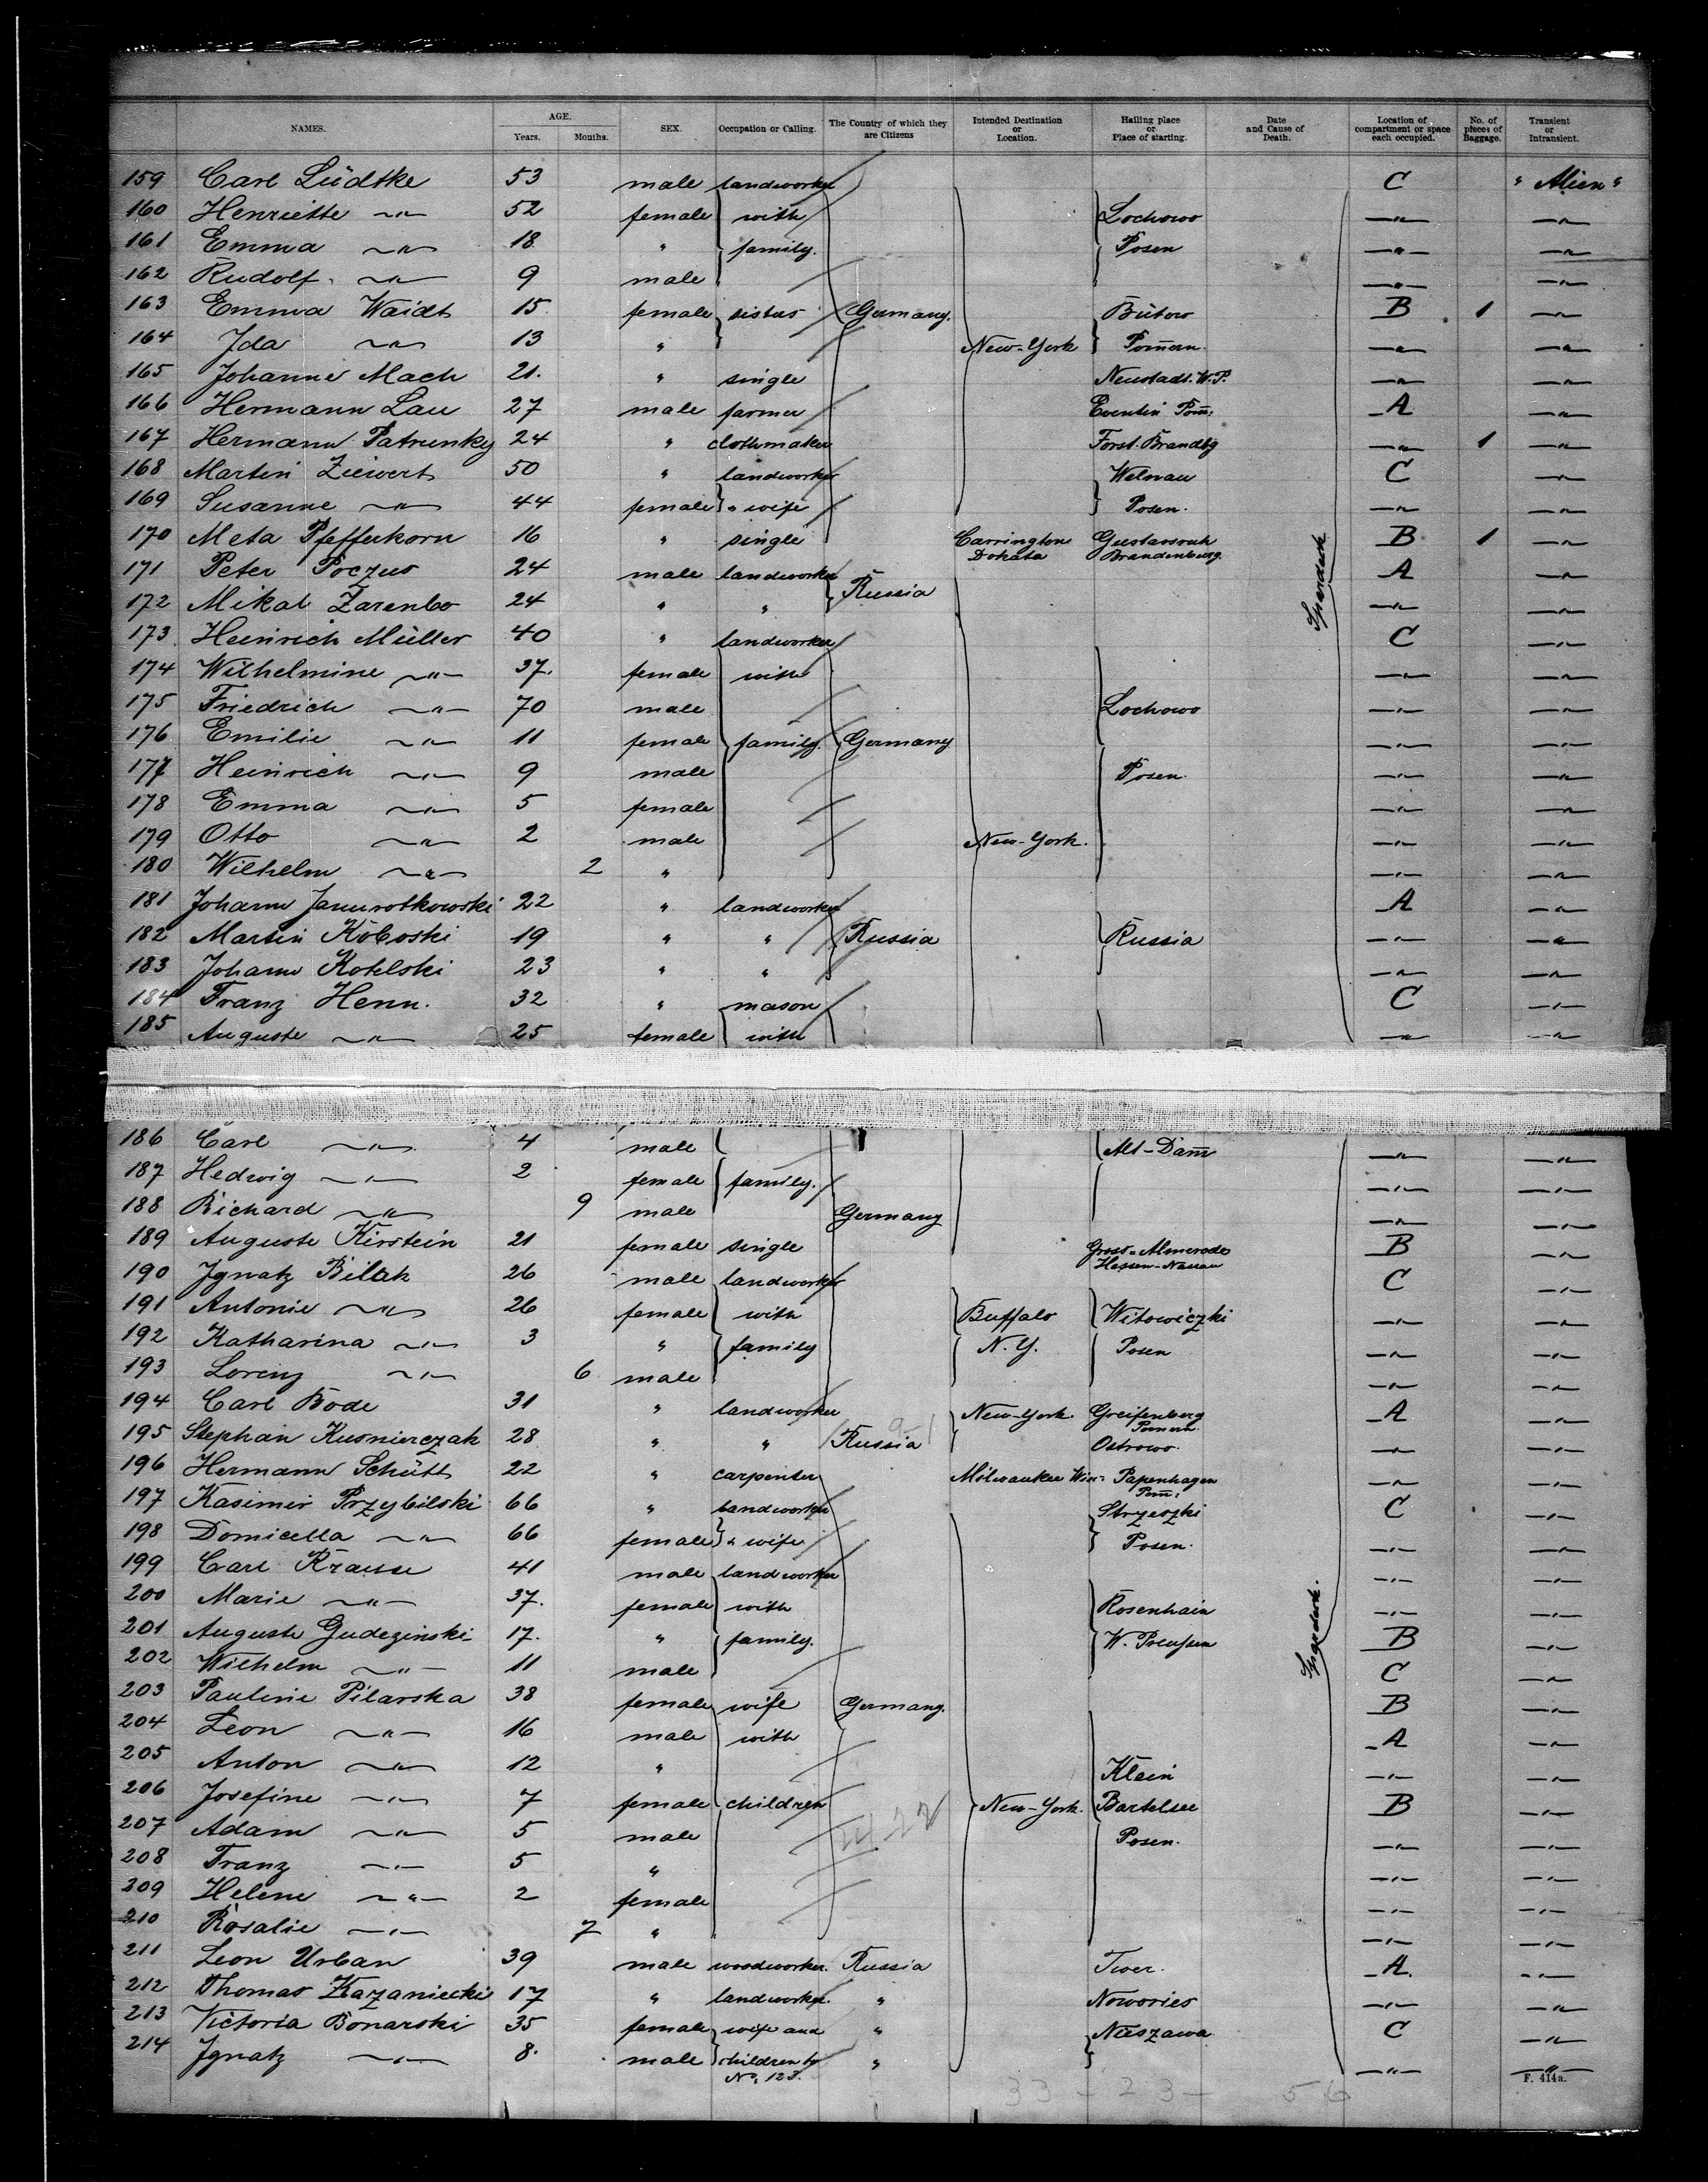 NAMES. AGE. Years. Months. SEX. Occupation or Calling. The Country of which they are Citizens Intended Destination or Location. Hailing place or Place of starting. Date and Cause of Death. Location of compartment or space each occupied. No. of pieces of Baggage. Transient or Intransient.
159 Carl Lüdtke 53 male landworker C " Alien "
160 Henriette —"— 52 female with Lochowo —"— —"—
161 Emma —"— 18 " family. Posen —"— —"—
162 Rudolf —"— 9 male —"— —"—
163 Emma Waidt 15 female sisters Germany. Bütow B 1 —"—
164 Ida —"— 13 " New-York Pom̄ern. —"— —"—
165 Johanne Mach 21. " single Neustadt. W.P. —"— —"—
166 Hermann Lau 27 male farmer Eventin Pom̄: A —"—
167 Hermann Patrunky 24 " clothmaker Forst. Brandbg —"— 1 —"—
168 Martin Ziewert 50 " landworker Welnau C —"—
169 Susanne —"— 44 female " wife Posen. —"— —"—
170 Meta Pfefferkorn 16 " single Carrington Dokata Gustavsruh Brandenburg. B 1 —"—
171 Peter Poczus 24 male landworker Russia A —"—
172 Mikal Zarenbo 24 " " —"— —"—
Sparedeck
173 Heinrich Müller 40 " landworker C —"—
174 Wilhelmine —"— 37. female with —"— —"—
175 Friedrich —"— 70 male Lochowo —"— —"—
176 Emilie —"— 11 female family. Germany —"— —"—
177 Heinrich —"— 9 male Posen. —"— —"—
178 Emma —"— 5 female —"— —"—
179 Otto —"— 2 male New-York. —"— —"—
180 Wilhelm —"— 2 " —"— —"—
181 Johann 22 " landworker A —"—
182 Martin Koboski 19 " " Russia Russia —"— —"—
183 Johann Kotelski 23 " " —"— —"—
184 Franz Henn. 32 " mason C —"—
185 Auguste —"— 25 female with —"— —"—
186 Carl —"— 4 male Alt-Dam̄ —"— —"—
187 Hedwig —"— 2 female family. —"— —"—
188 Richard —"— 9 male Germany —"— —"—
189 Auguste Kirstein 21 female single Gross-Almerode Hessen-Nassau B —"—
190 Ignatz Bilak 26 male landworker C —"—
191 Antonie —"— 26 female with Buffalo Witowiczki —"— —"—
192 Katharina —"— 3 " family N.Y. Posen —"— —"—
193 Lorenz —"— 6 male —"— —"—
194 Carl Bode 31 " landworker New-York. Greifenberg Pomern. A —"—
195 Stephan Kusnierczak 28 " " Russia Ostrowo. —"— —"—
196 Hermann Schütt 22 " carpenter Milwaukee Wis: Papenhagen Pom̄: —"— —"—
197 Kasimir Przybilski 66 " landworker Strzeszki C —"—
198 Domicella —"— 66 female " wife Posen. —"— —"—
199 Carl Krause 41 male landworker —"— —"—
200 Marie —"— 37. female with Rosenhain —"— —"—
201 Auguste Gudezinski 17. " family. W. Preussen B —"—
202 Wilhelm —"— 11 male C —"—
Sparedeck.
203 Pauline Pilarska 38 female wife Germany. B —"—
204 Leon —"— 16 male with A —"—
205 Anton —"— 12 " Klein —"— —"—
206 Josefine —"— 7 female children New-York. Bartelsee B —"—
207 Adam —"— 5 male Posen. —"— —"—
208 Franz —"— 5 " —"— —"—
209 Helene —"— 2 female —"— —"—
210 Rosalie —"— 7 " —"— —"—
211 Leon Urban 39 male woodworker. Russia Twer. A. —"—
212 Thomas Kazaniecki 17 " landworker. " Nowories —"— —"—
213 Victoria Bonarski 35 female wife and " Nieszawa C —"—
214 Ignatz —"— 8. male children to No. 123. " —"— —"—
F. 414a.
33 - 23 - 56